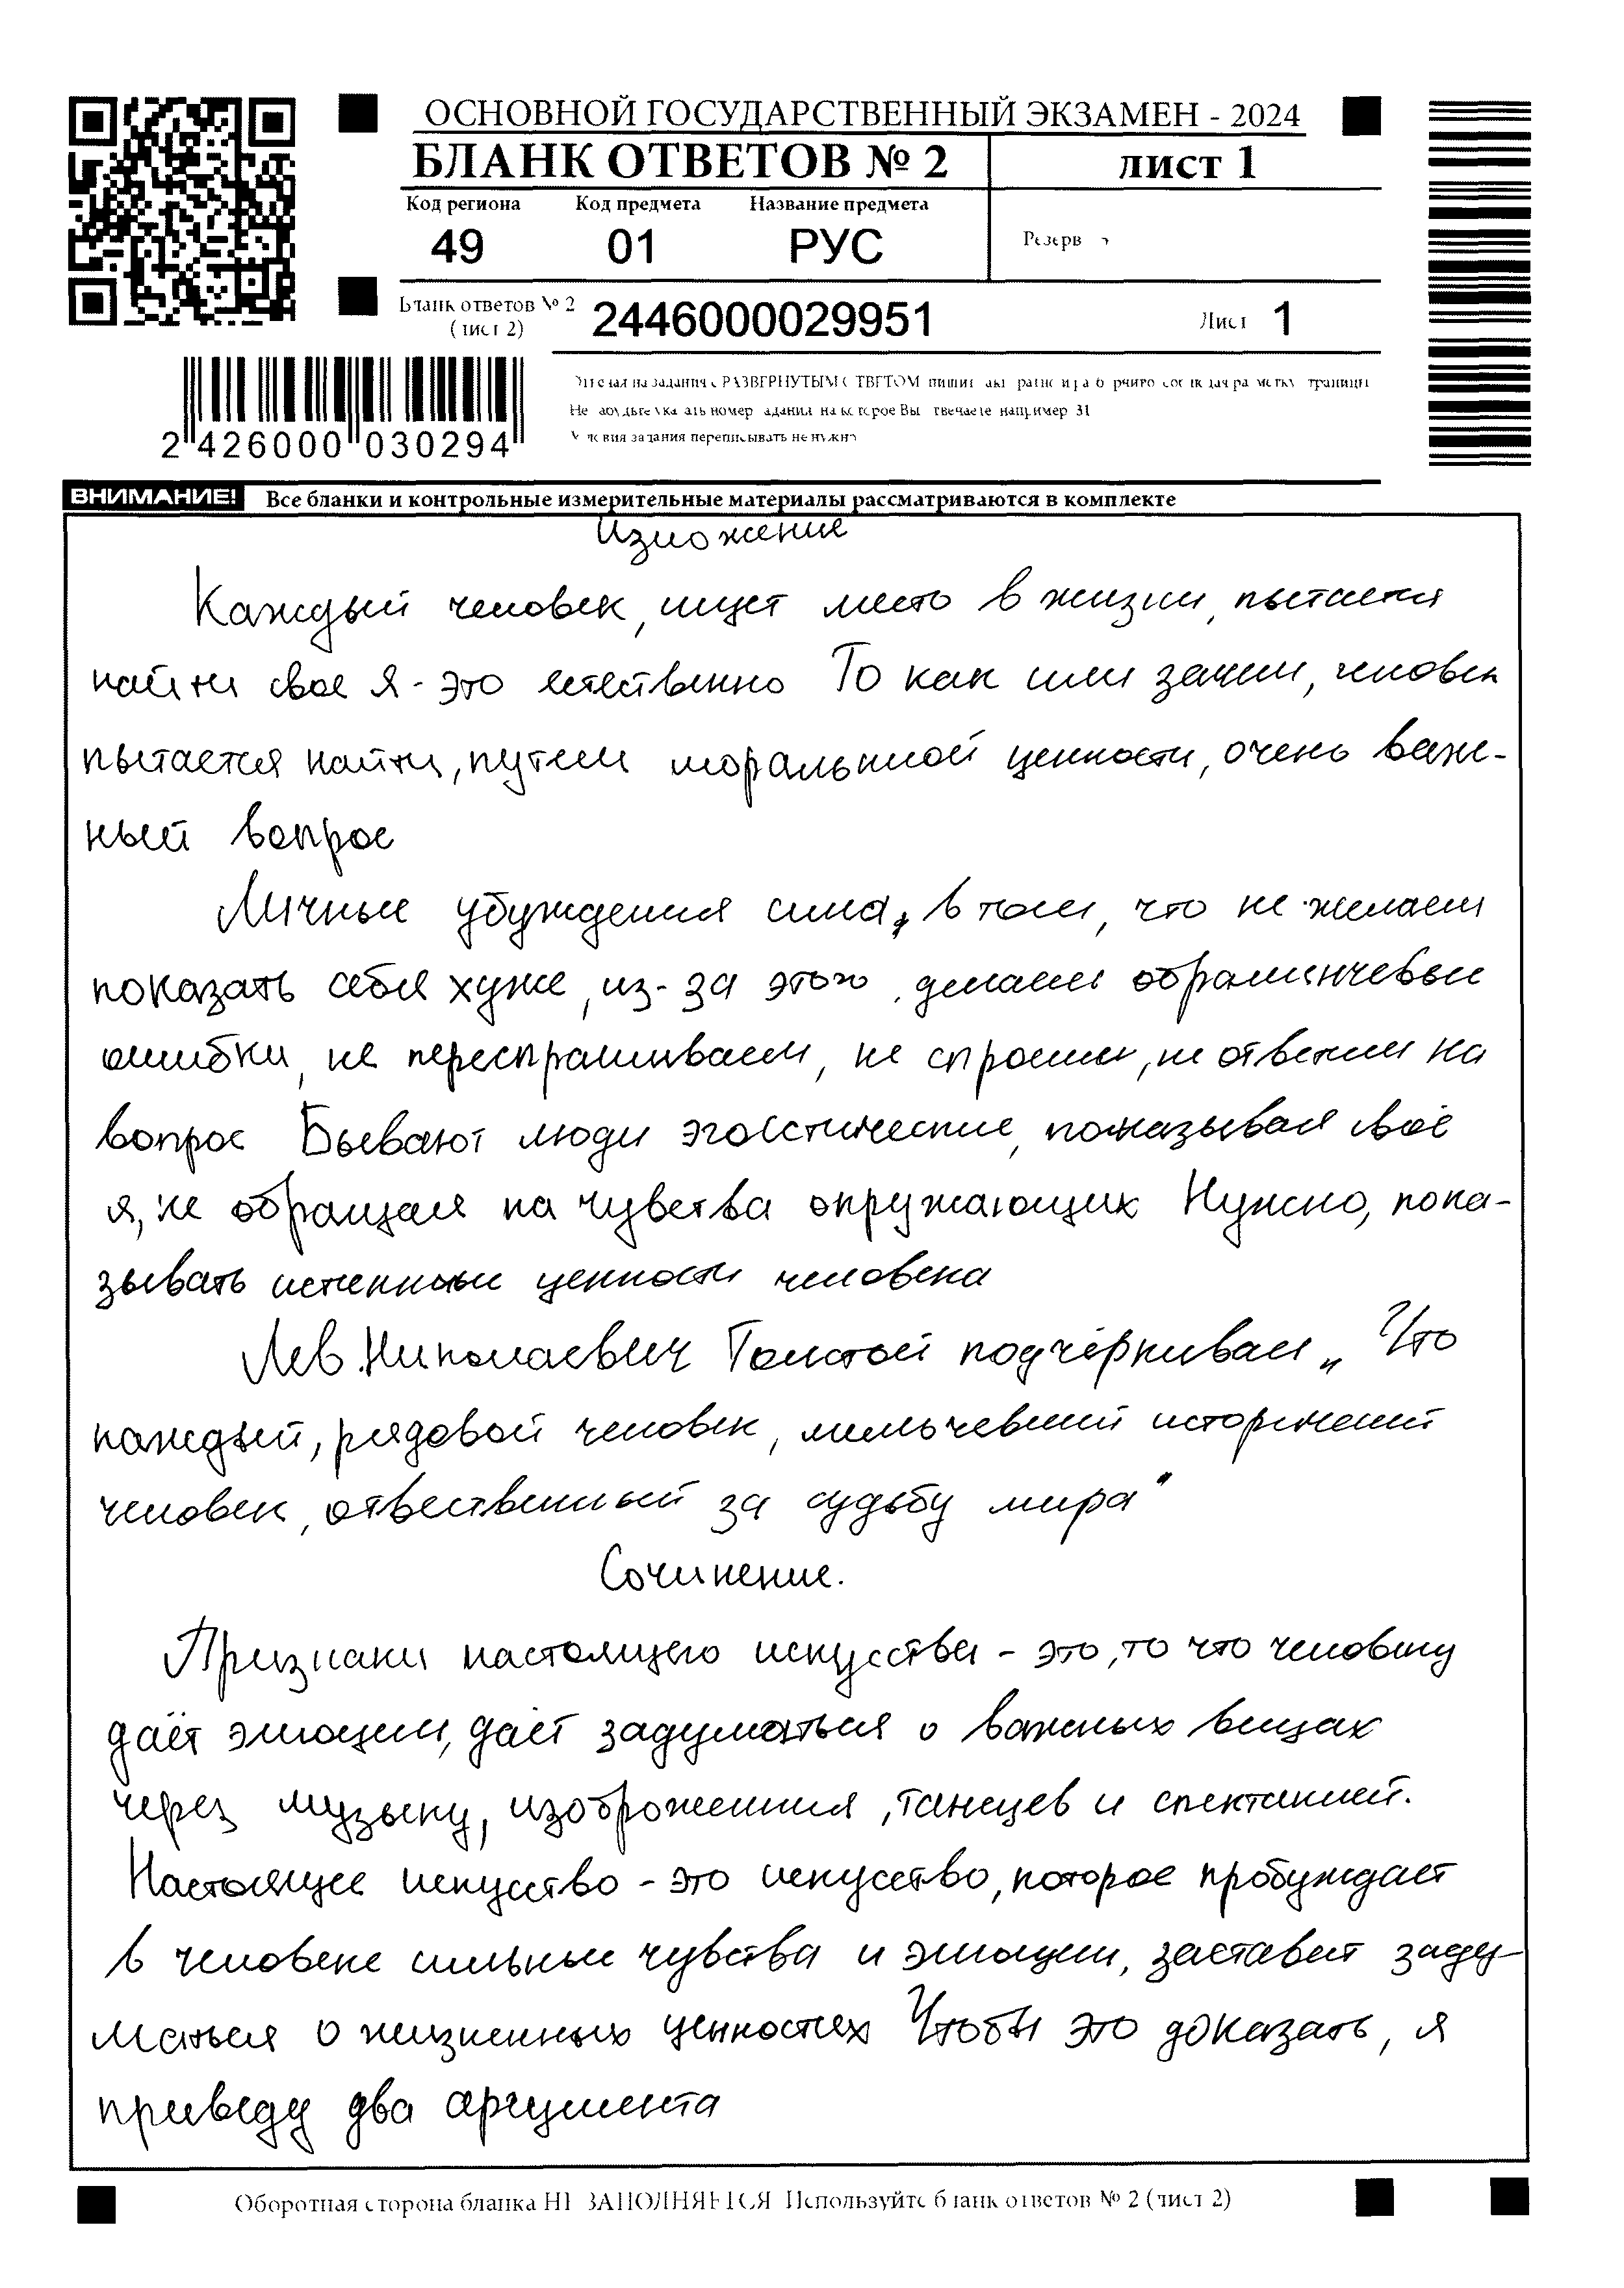 ОСНОВНОЙ ГОСУДАРСТВЕННЫЙ ЭКЗАМЕН - 2024
БЛАНК ОТВЕТОВ № 2
ЛИСТ 1
Код региона Код предмета Название предмета
49 01 РУС
Резерв
Бланк ответов № 2
(лист 2)
2446000029951
Лист 1
2 426000 030294
ВНИМАНИЕ! Все бланки и контрольные измерительные материалы рассматриваются в комплекте
Изложение
Каждый человек, ищет место в жизни, пытается
найти свое я - это естественно То как или зачем, человек
пытается найти, путем моральной ценности, очень важ-
ный вопрос
Личные убуждения сила, в том, что не желаем
показать себя хуже, из-за этого, делаем
ошибки, не переспрашиваем, не спросим, не ответим на
вопрос Бывают люди эгоистические, показывая своё
я, не обращая на чувства окружающих Нужно, пока-
зывать истенные ценности человека
Лев Николаевич Толстой подчёркивал „Что
каждый, рядовой человек,
человек, отвественный за судьбу мира"
Сочинение.
Признаки настоящего искусства - это, то что человеку
даёт эмоции, даёт задуматься о важных вещах
через музыку, изоброжения, танецев и спектаклей.
Настоящее искусство - это искусство, которое пробуждает
в человеке сильные чувства и эмоции, заставит заду-
маться о жизненных ценностях Чтобы это доказать, я
приведу два аргумента
Оборотная сторона бланка НЕ ЗАПОЛНЯЕТСЯ Используйте бланк ответов № 2 (лист 2)